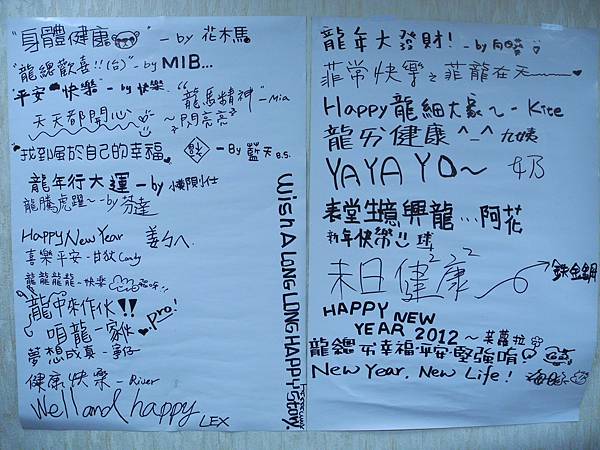 "身體健康" - by 花木馬
"龍總歡喜!!(台)" - by MIB...
"平安 快樂" - by 快樂
"龍馬精神" - Mia
天天都開心
~閃亮亮~
"找到屬於自己的幸福" - By 藍天 B.S.
龍年行大運 - by
龍騰虎躍~ - by 芬達
Happy New Year
喜樂平安 - 甘狄 Candy
龍龍龍龍 - 快樂
龍中來作伙!!
咱龍一家伙 pro!
夢想成真 -
健康快樂 - River
Well and happy LEX
Wish A LONG LONG HAPPY Story.
龍年大發財! - by
菲常快樂之菲龍在天
Happy 龍細大家~ - Kite
龍ㄞ健康 ^_^ 九姨
YA YA YO~ 奶
表堂生意興龍... 阿花
新年快樂!! 球
末日健康 222
鐵金鋼
HAPPY NEW
YEAR 2012 ~ 芙蘿拉
龍總ㄞ幸福平安堅強唷
New Year, New Life!